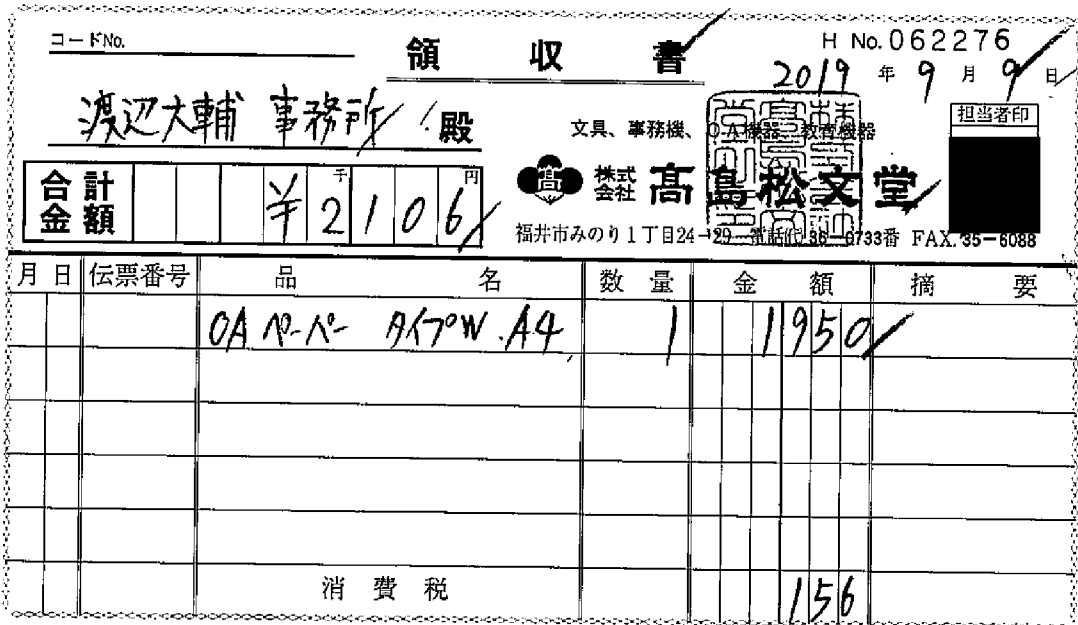 コードNo.
領収書
H No.062276
2019年9月9日
渡辺大輔 事務所 殿
文具、事務機、OA機器、教育機器
担当者印
合計金額 ¥2106
千 円
髙 株式会社 髙島松文堂
福井市みのり1丁目24-29 電話代36-0733番 FAX.35-6088
月 日 伝票番号 品名 数量 金額 摘要
OAペーパー タイプW.A4 1 1950
消費税 156